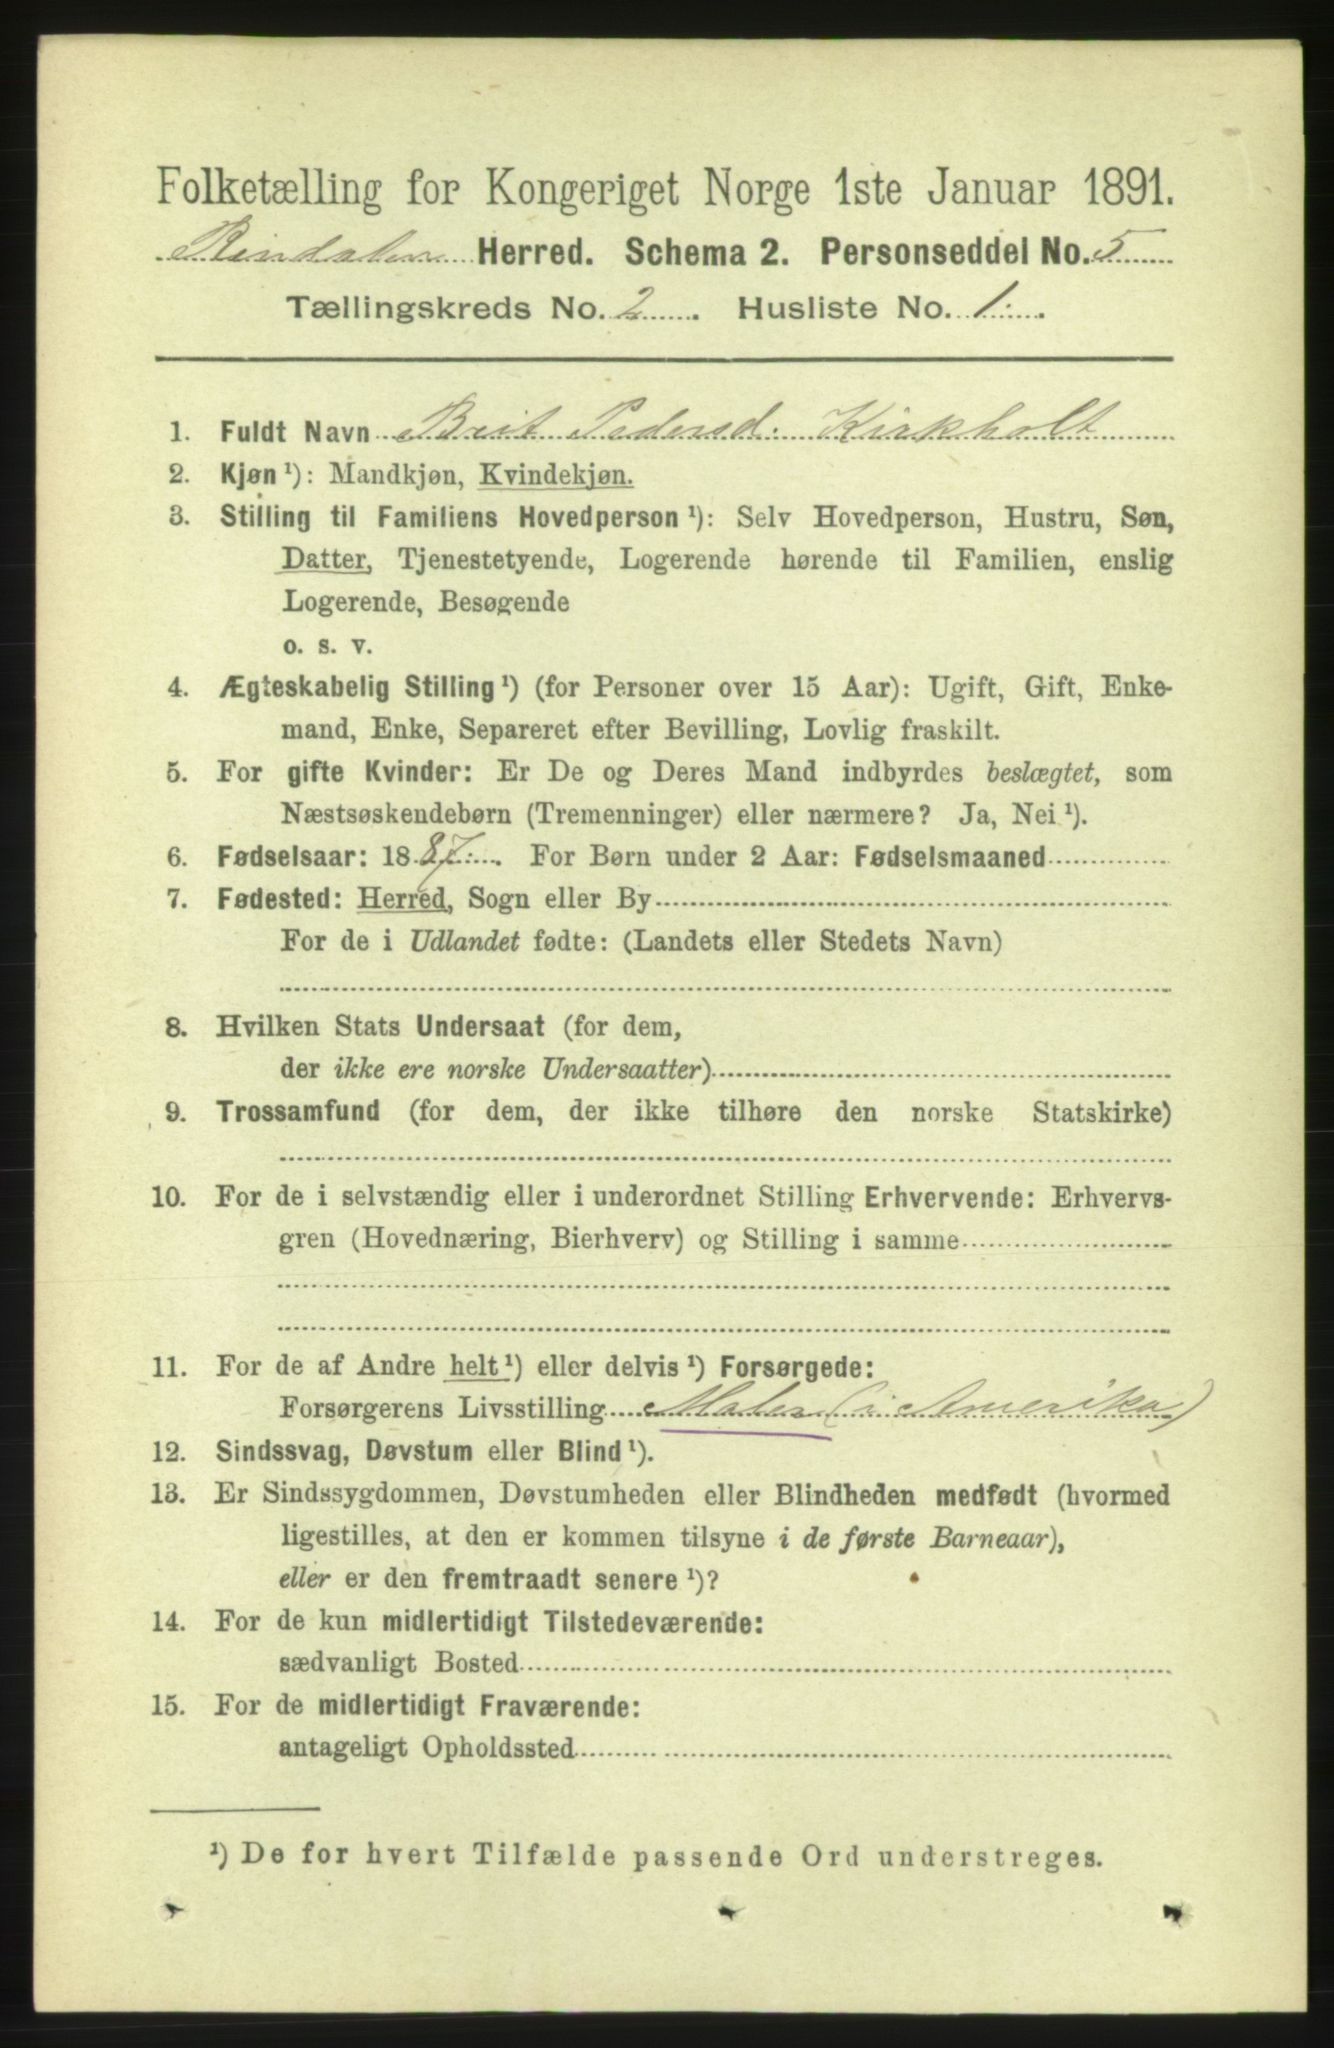 Folketælling for Kongeriget Norge 1ste Januar 1891.
Rindalen Herred. Schema 2. Personseddel No. 5
Tællingskreds No. 2. Husliste No. 1.
1. Fuldt Navn Brit Pedersd. Kirkholt
2. Kjøn ¹): Mandkjøn, Kvindekjøn.
3. Stilling til Familiens Hovedperson ¹): Selv Hovedperson, Hustru, Søn,
Datter, Tjenestetyende, Logerende hørende til Familien, enslig
Logerende, Besøgende
o. s. v.
4. Ægteskabelig Stilling ¹) (for Personer over 15 Aar): Ugift, Gift, Enke-
mand, Enke, Separeret efter Bevilling, Lovlig fraskilt.
5. For gifte Kvinder: Er De og Deres Mand indbyrdes beslægtet, som
Næstsøskendebørn (Tremenninger) eller nærmere? Ja, Nei ¹).
6. Fødselsaar: 1887. For Børn under 2 Aar: Fødselsmaaned
7. Fødested: Herred, Sogn eller By
For de i Udlandet fødte: (Landets eller Stedets Navn)
8. Hvilken Stats Undersaat (for dem,
der ikke ere norske Undersaatter)
9. Trossamfund (for dem, der ikke tilhøre den norske Statskirke)
10. For de i selvstændig eller i underordnet Stilling Erhvervende: Erhvervs-
gren (Hovednæring, Bierhverv) og Stilling i samme
11. For de af Andre helt ¹) eller delvis ¹) Forsørgede:
Forsørgerens Livsstilling Maler (i Amerika)
12. Sindssvag, Døvstum eller Blind ¹).
13. Er Sindssygdommen, Døvstumheden eller Blindheden medfødt (hvormed
ligestilles, at den er kommen tilsyne i de første Barneaar),
eller er den fremtraadt senere ¹)?
14. For de kun midlertidigt Tilstedeværende:
sædvanligt Bosted
15. For de midlertidigt Fraværende:
antageligt Opholdssted
¹) De for hvert Tilfælde passende Ord understreges.